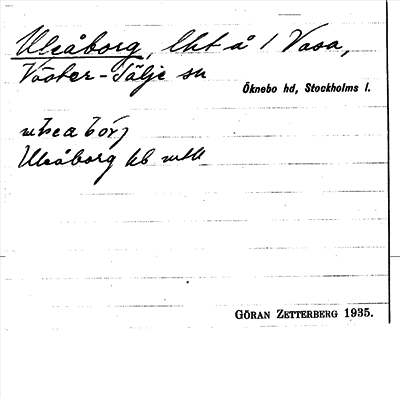 Uleåborg, lht å 1 Vasa,
Väster-Tälje sn
Öknebo hd, Stockholms l.
Uleåborg kb
GÖRAN ZETTERBERG 1935.